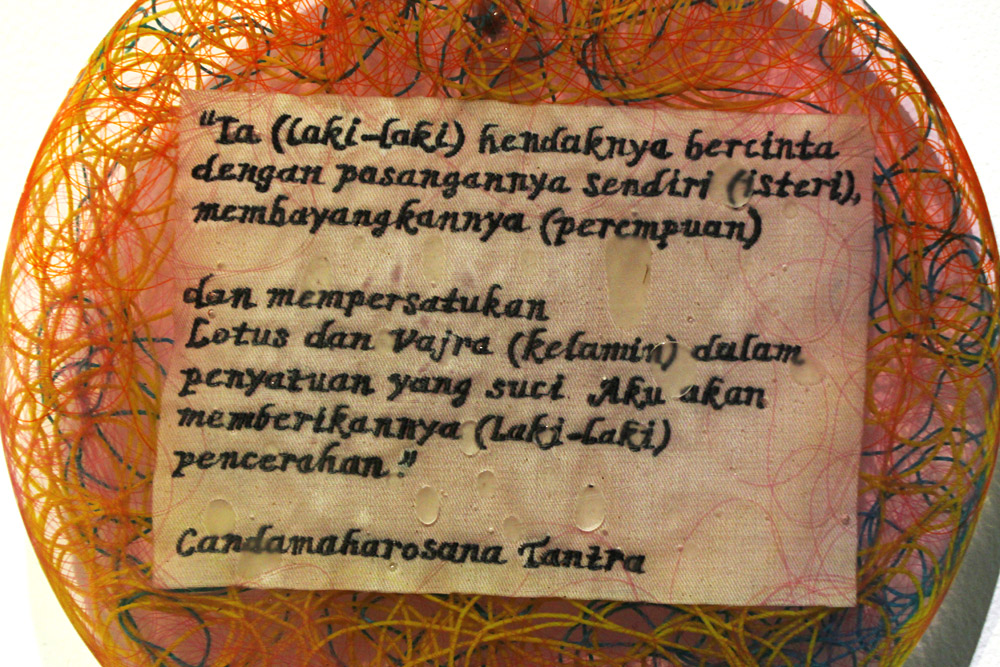 "Ia (laki-laki) hendaknya bercinta
dengan pasangannya sendiri (isteri),
membayangkannya (perempuan)
dan mempersatukan
Lotus dan Vajra (kelamin) dalam
penyatuan yang suci. Aku akan
memberikannya (laki-laki)
pencerahan."
Candamaharosana Tantra